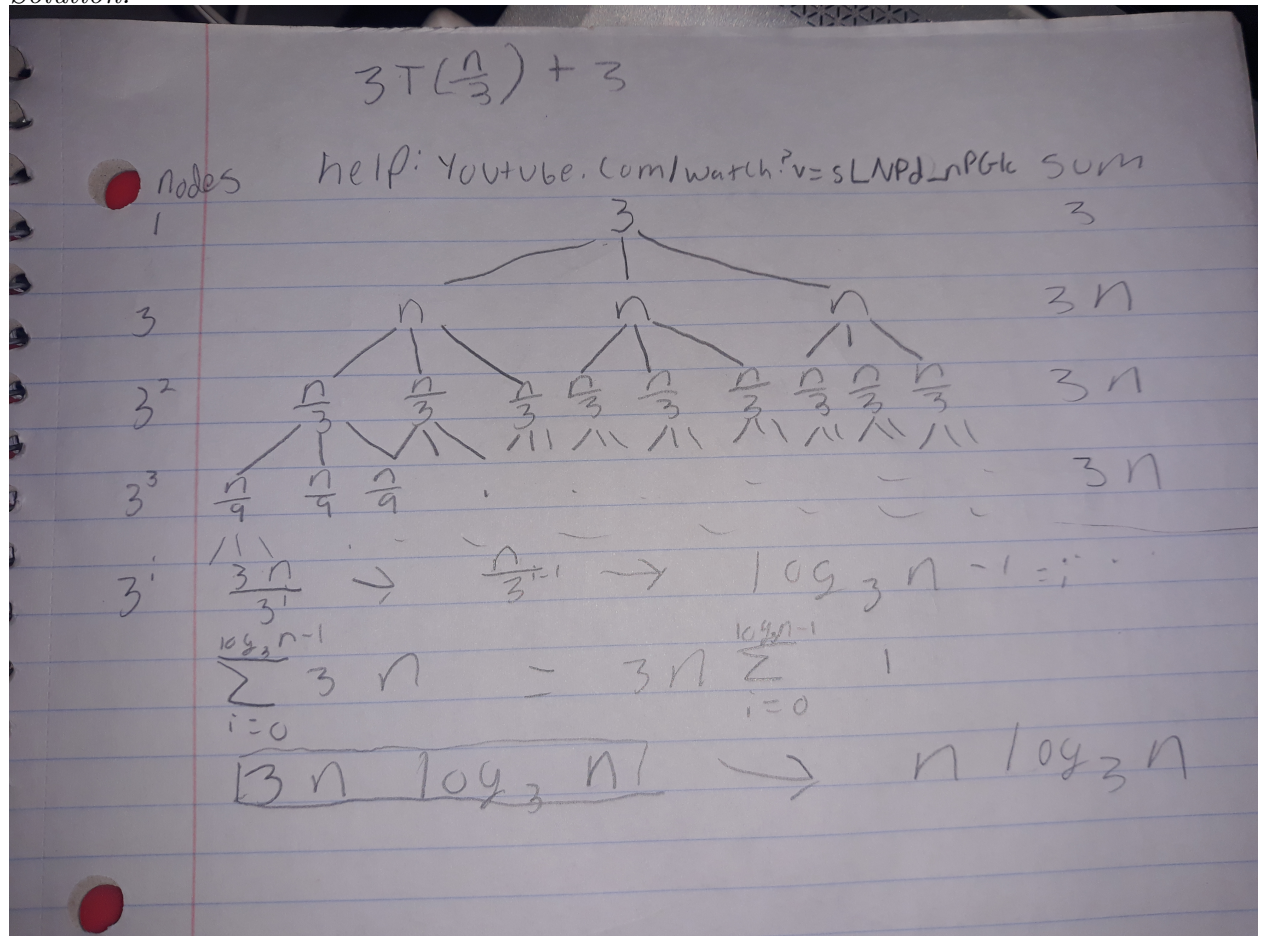 Solution:
3T(n/3) + 3
nodes help: Youtube.com/watch?v=sLNPd_nPGk sum
1 3 3
3 n n n 3n
3² n/3 n/3 n/3 n/3 n/3 n/3 n/3 n/3 n/3 3n
3³ n/9 n/9 n/9 3n
3ⁱ 3n/3ⁱ → n/3ⁱ⁻¹ → log₃n-1=i
log₃n-1 log₃n-1
∑ 3n = 3n ∑ 1
i=0 i=0
3n log₃ n → n log₃ n